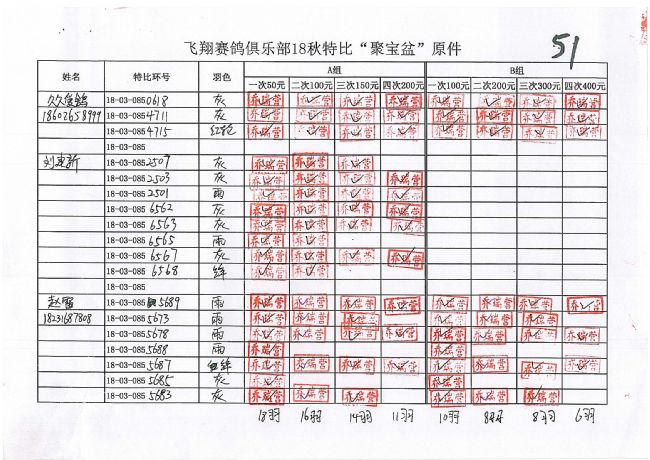 飞翔赛鸽俱乐部18秋特比“聚宝盆”原件
51
姓名 特比环号 羽色 A组 B组
一次50元 二次100元 三次150元 四次200元 一次100元 二次200元 三次300元 四次400元
18-03-0850618 灰 乔瑞营 乔瑞营 乔瑞营 乔瑞营 乔瑞营 乔瑞营 乔瑞营 乔瑞营
18602658999 18-03-0854711 灰 乔瑞营 乔瑞营 乔瑞营 乔瑞营 乔瑞营 乔瑞营 乔瑞营 乔瑞营
18-03-0854715 乔瑞营 乔瑞营 乔瑞营 乔瑞营 乔瑞营 乔瑞营 乔瑞营 乔瑞营
18-03-085
18-03-0852507 灰 乔瑞营 乔瑞营 乔瑞营
18-03-0852503 灰 乔瑞营 乔瑞营 乔瑞营 乔瑞营
18-03-0852501 雨 乔瑞营 乔瑞营 乔瑞营 乔瑞营
18-03-0856562 灰 乔瑞营 乔瑞营 乔瑞营 乔瑞营
18-03-0856563 灰 乔瑞营 乔瑞营 乔瑞营 乔瑞营
18-03-0856565 雨 乔瑞营 乔瑞营
18-03-0856567 灰 乔瑞营 乔瑞营 乔瑞营 乔瑞营
18-03-0856568 绛 乔瑞营 乔瑞营
18-03-085
赵雷 18-03-0855689 雨 乔瑞营 乔瑞营 乔瑞营 乔瑞营 乔瑞营 乔瑞营 乔瑞营 乔瑞营
18231687808 18-03-0855673 雨 乔瑞营 乔瑞营 乔瑞营 乔瑞营 乔瑞营 乔瑞营
18-03-0855678 雨 乔瑞营 乔瑞营 乔瑞营 乔瑞营 乔瑞营 乔瑞营 乔瑞营
18-03-0855688 雨 乔瑞营 乔瑞营
18-03-0855687 绛 乔瑞营 乔瑞营 乔瑞营 乔瑞营 乔瑞营 乔瑞营 乔瑞营 乔瑞营
18-03-0855685 灰 乔瑞营
18-03-0855683 灰 乔瑞营 乔瑞营 乔瑞营 乔瑞营 乔瑞营 乔瑞营
18羽 16羽 14羽 11羽 10羽 8羽 8羽 6羽